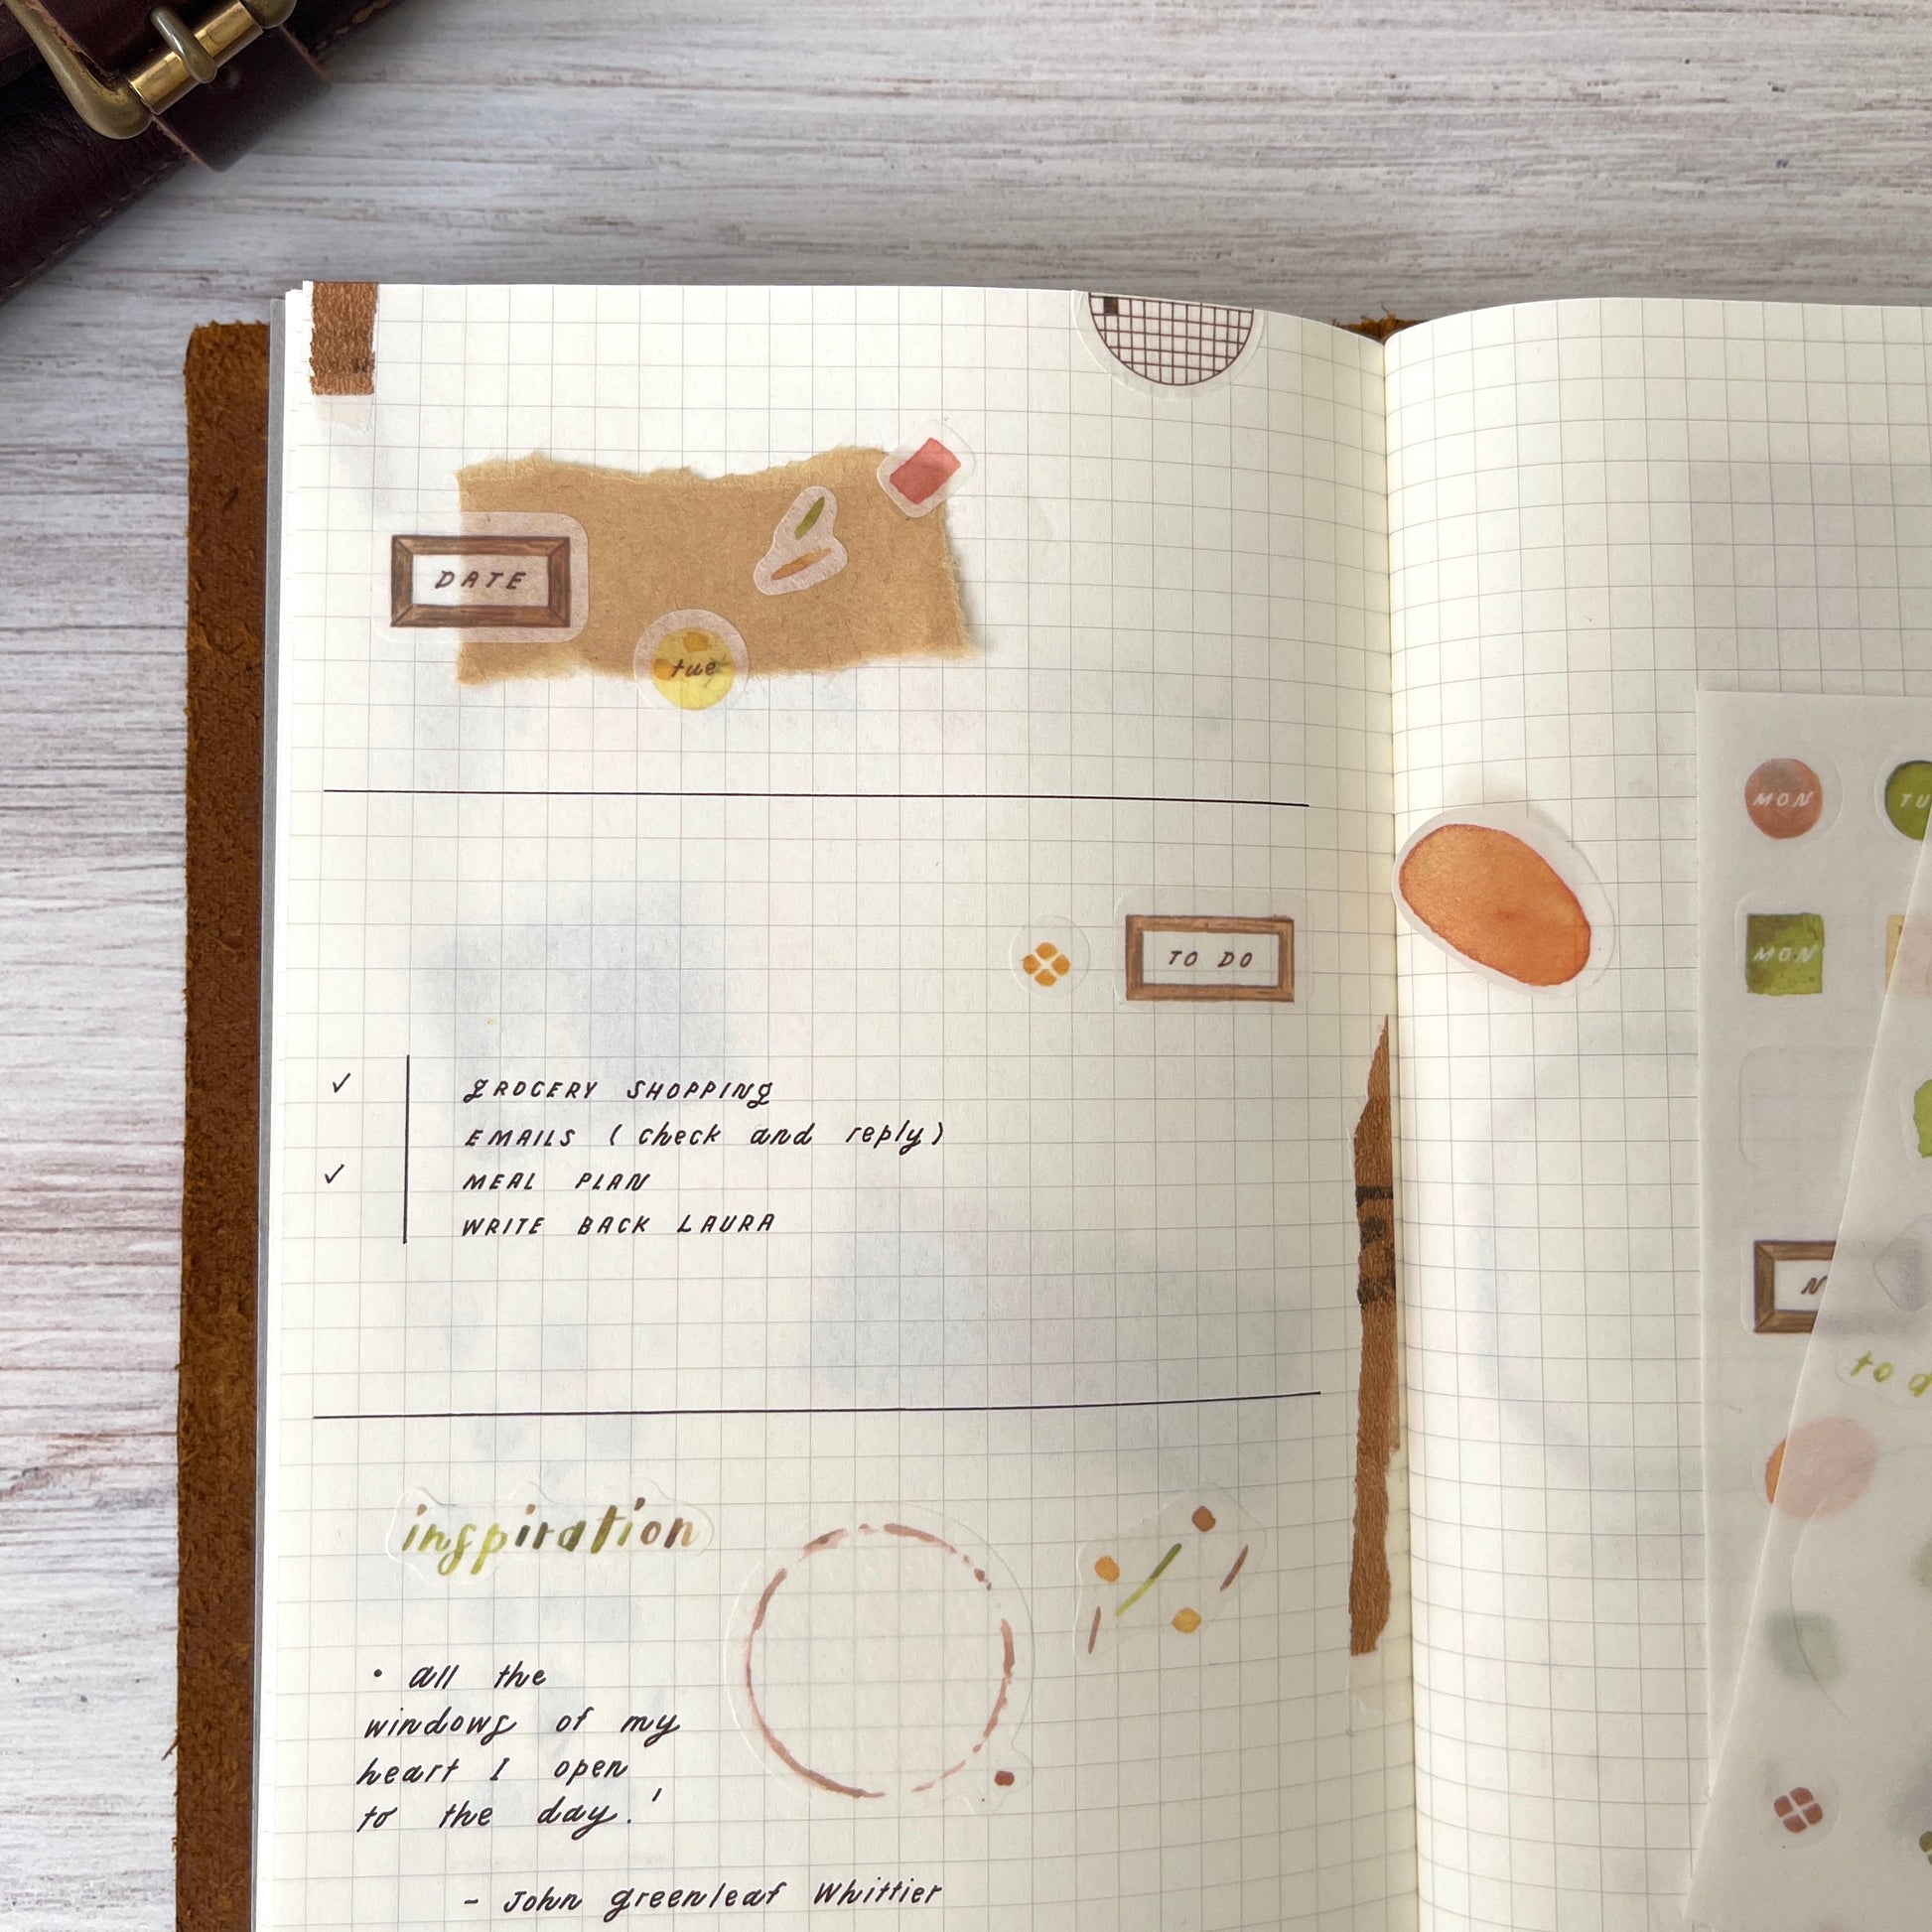 DATE
tue
TO DO
✓ GROCERY SHOPPING
EMAILS ( check and reply)
✓ MEAL PLAN
WRITE BACK LAURA
inspiration
• all the
windows of my
heart I open
to the day.'
- John greenleaf Whittier
MON
MON